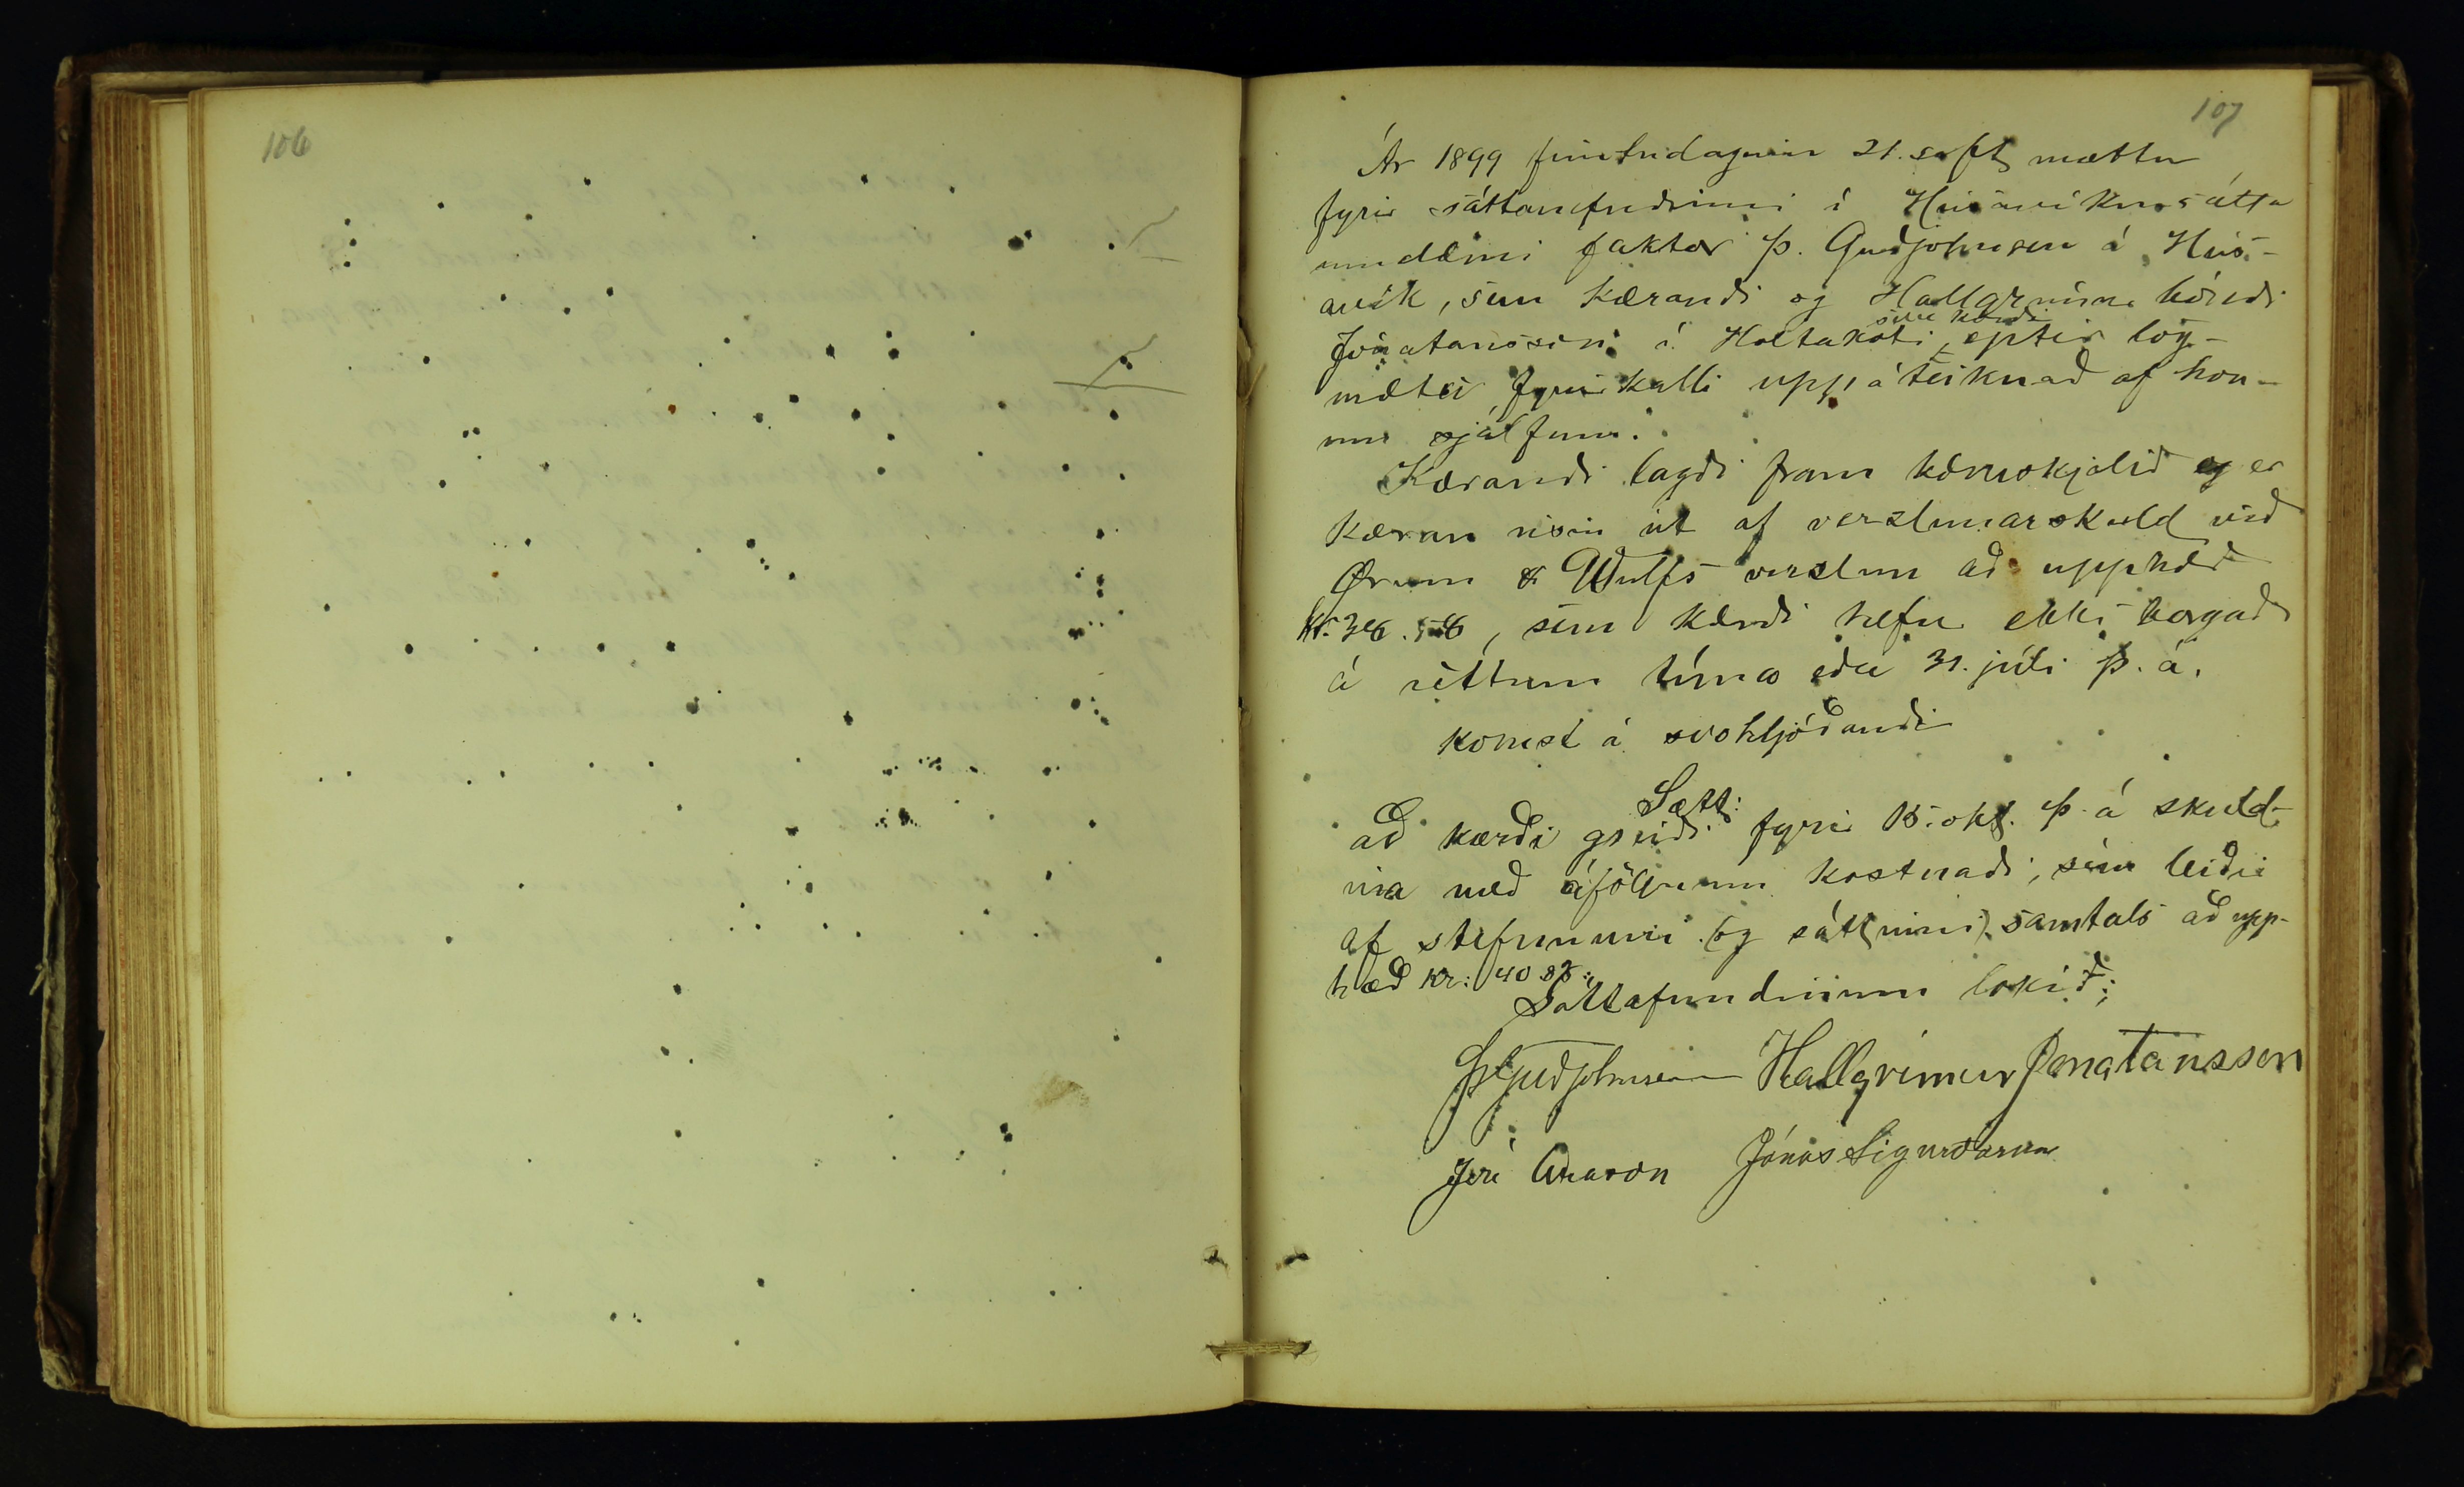 106
107
Ár 1899 fimtudaginn 21. sept mættu
fyrir sáttanefndinni í Húsavíkursátta
umdæmi faktor Þ. Guðjohnsen á Hús-
avík, sem kærandi og Hallgrímur bóndi
sem kærði
Jónatansson í Holtakoti, eptir lög-
mætu fyrirkalli uppáteiknað af hon-
um sjálfum.
Kærandi lagði fram kæruskjalið og er
kæran risin út af verzlunarskuld við
Ørum & Wulfs verslun að upphæð
kr. 38.58, sem kærði hefur ekki borgað
á réttum tíma eða 31. júlí þ. á.
komst á svohljóðandi
Sætt:
að kærði greiði fyrir 15. okt. þ. á skuld-
ina með áföllnum kostnaði, sem leiðir
af stefnunni (og sáttinni) samtals að upp-
hæð kr: 40
Sáttafundinum lokið;
ÞGuðjohnsen Hallgrímur Jónatansson
Jón Arason Jónas Sigurðsson